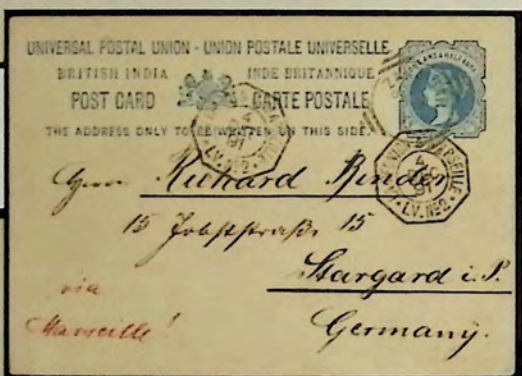 UNIVERSAL POSTAL UNION - UNION POSTALE UNIVERSELLE
BRITISH INDIA INDE BRITANNIQUE
POST CARD CARTE POSTALE
THE ADDRESS ONLY TO BE WRITTEN ON THIS SIDE.
4
91
L.V. Nº2
MARSEILLE
4
91
L.V. Nº2
Herrn Richard Binder
15 Jobststraße 15
Stargard i. P.
via
Marseille!
Germany.